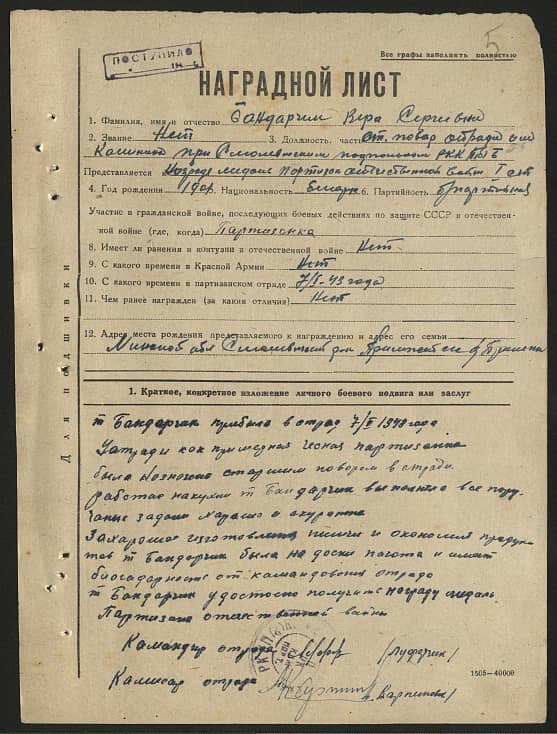 ПОСТУПИЛО
5
Все графы заполнять полностью
НАГРАДНОЙ ЛИСТ
1. Фамилия, имя и отчество Бандарчик Вера Сергевна
2. Звание Нет 3. Должность, часть ст. повар отряда им
Калинина при Смолевическом подпольном РКК П/б/Б
Представляется к медале Партизан отечественной войны I ст
4. Год рождения 5. Национальность 6. Партийность б/партийная
Участие в гражданской войне, последующих боевых действиях по защите СССР и отечествен-
ной войне (где, когда) Партизанка
8. Имеет ли ранения и контузии в отечественной войне Нет
9. С какого времени в Красной Армии Нет
10. С какого времени в партизанском отряде 43 года
11. Чем ранее награжден (за какия отличия) Нет
12. Адрес места рождения представляемого к награждению и адрес его семьи
Минской обл Смолевичский
Для подшивки
1. Краткое, конкретное изложение личного боевого подвига или заслуг
т Бандарчик прибыла в отряд 1943 года
Уатряди как примерная чесная партизанка
была назначена старшим поваром в отряди.
работая накухни т Бандарчик выполняла все пору-
чаные задани харашо и акуратна
Захарошое изготовления пищи и економия прадук
тав т Бандарчик была на доски почота и имеит
благадарность от командования отряда
т Бандарчик удостоена получить награду медаль
Партизана отечественной войны
Командир отряда
Камисар отряда
1505—40000